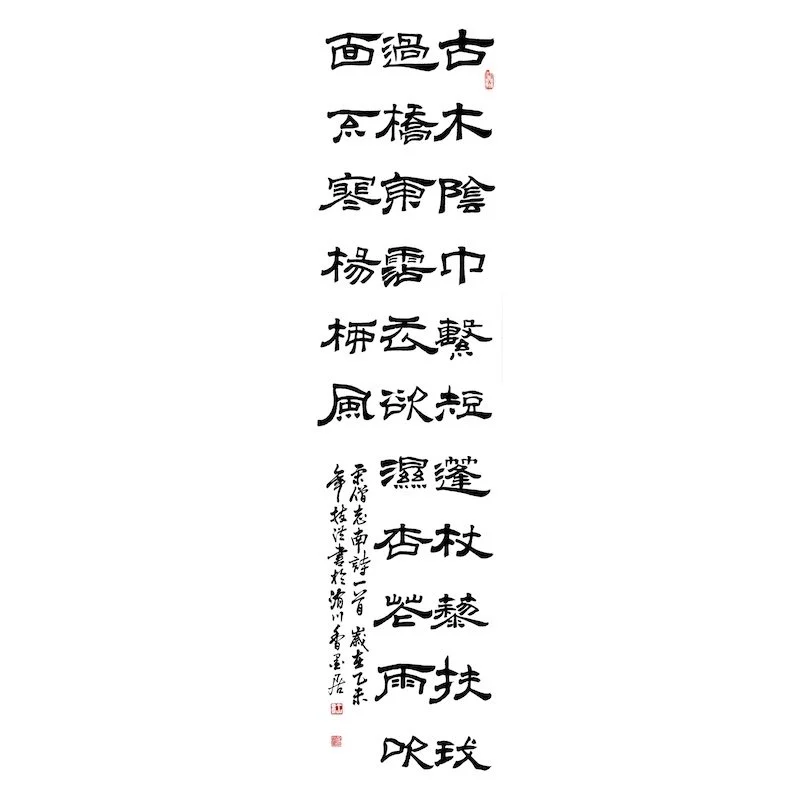 古木陰中繫短蓬杖藜扶我
過橋東霑衣欲濕杏花雨吹
面不寒楊柳風
宋僧志南詩一首歲在乙未
年書於川香墨居